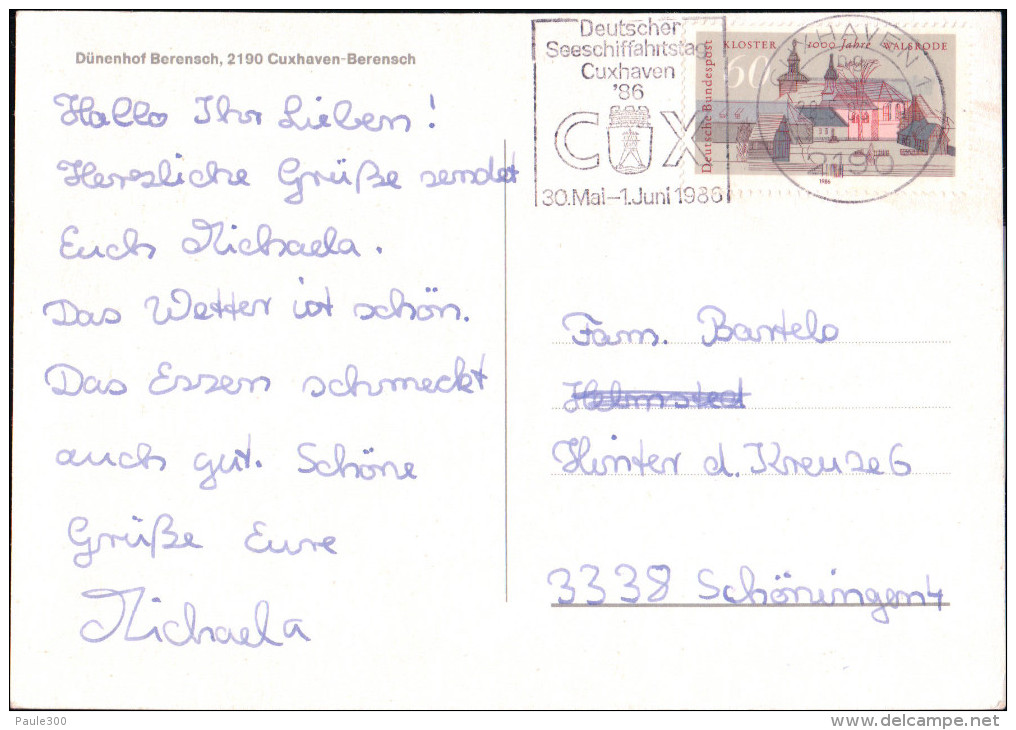 Dünenhof Berensch, 2190 Cuxhaven-Berensch
Hallo Ihr Lieben!
Herzliche Grüße sendet
Euch Michaela.
Das Wetter ist schön.
Das Essen schmeckt
auch gut. Schöne
Grüße Eure
Michaela
Deutscher
Seeschiffahrtstag
Cuxhaven
'86
CUX
30.Mai-1.Juni 1986
CUXHAVEN 1
2190
KLOSTER 1000 Jahre WALSRODE
60
Deutsche Bundespost
1986
Fam. Bartels
Helmsted
Hinter d. Kreuze 6
3338 Schöningen 4
Paule300
www.delcampe.net